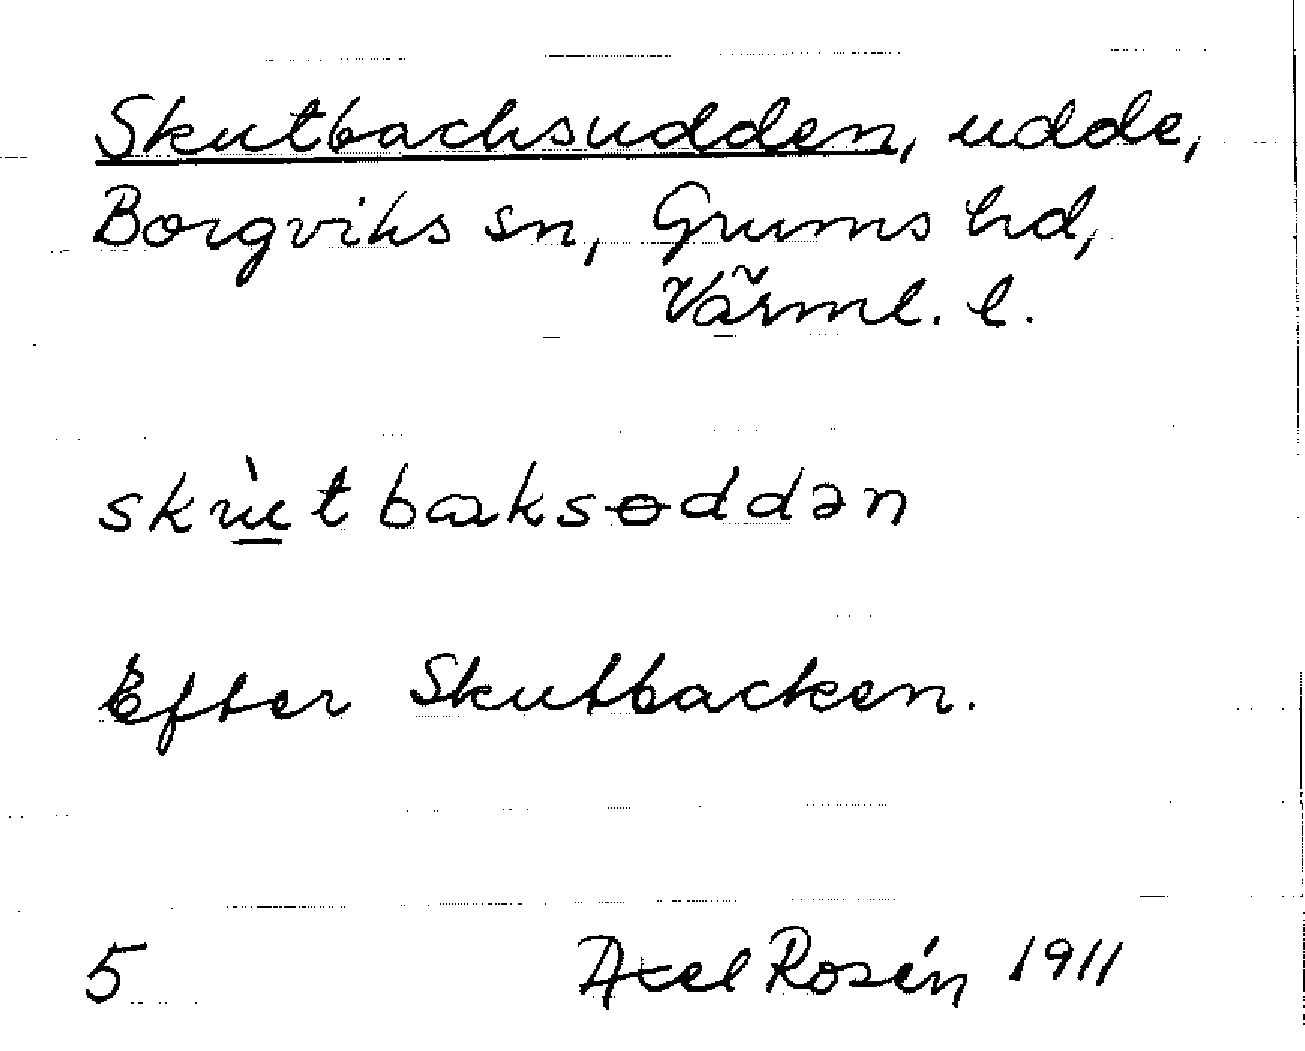 Skutbacksudden, udde,
Borgviks sn, Grums hd,
Värml. l.
skùtbaksɵddən
Efter Skutbacken.
5 Axel Rosén 1911